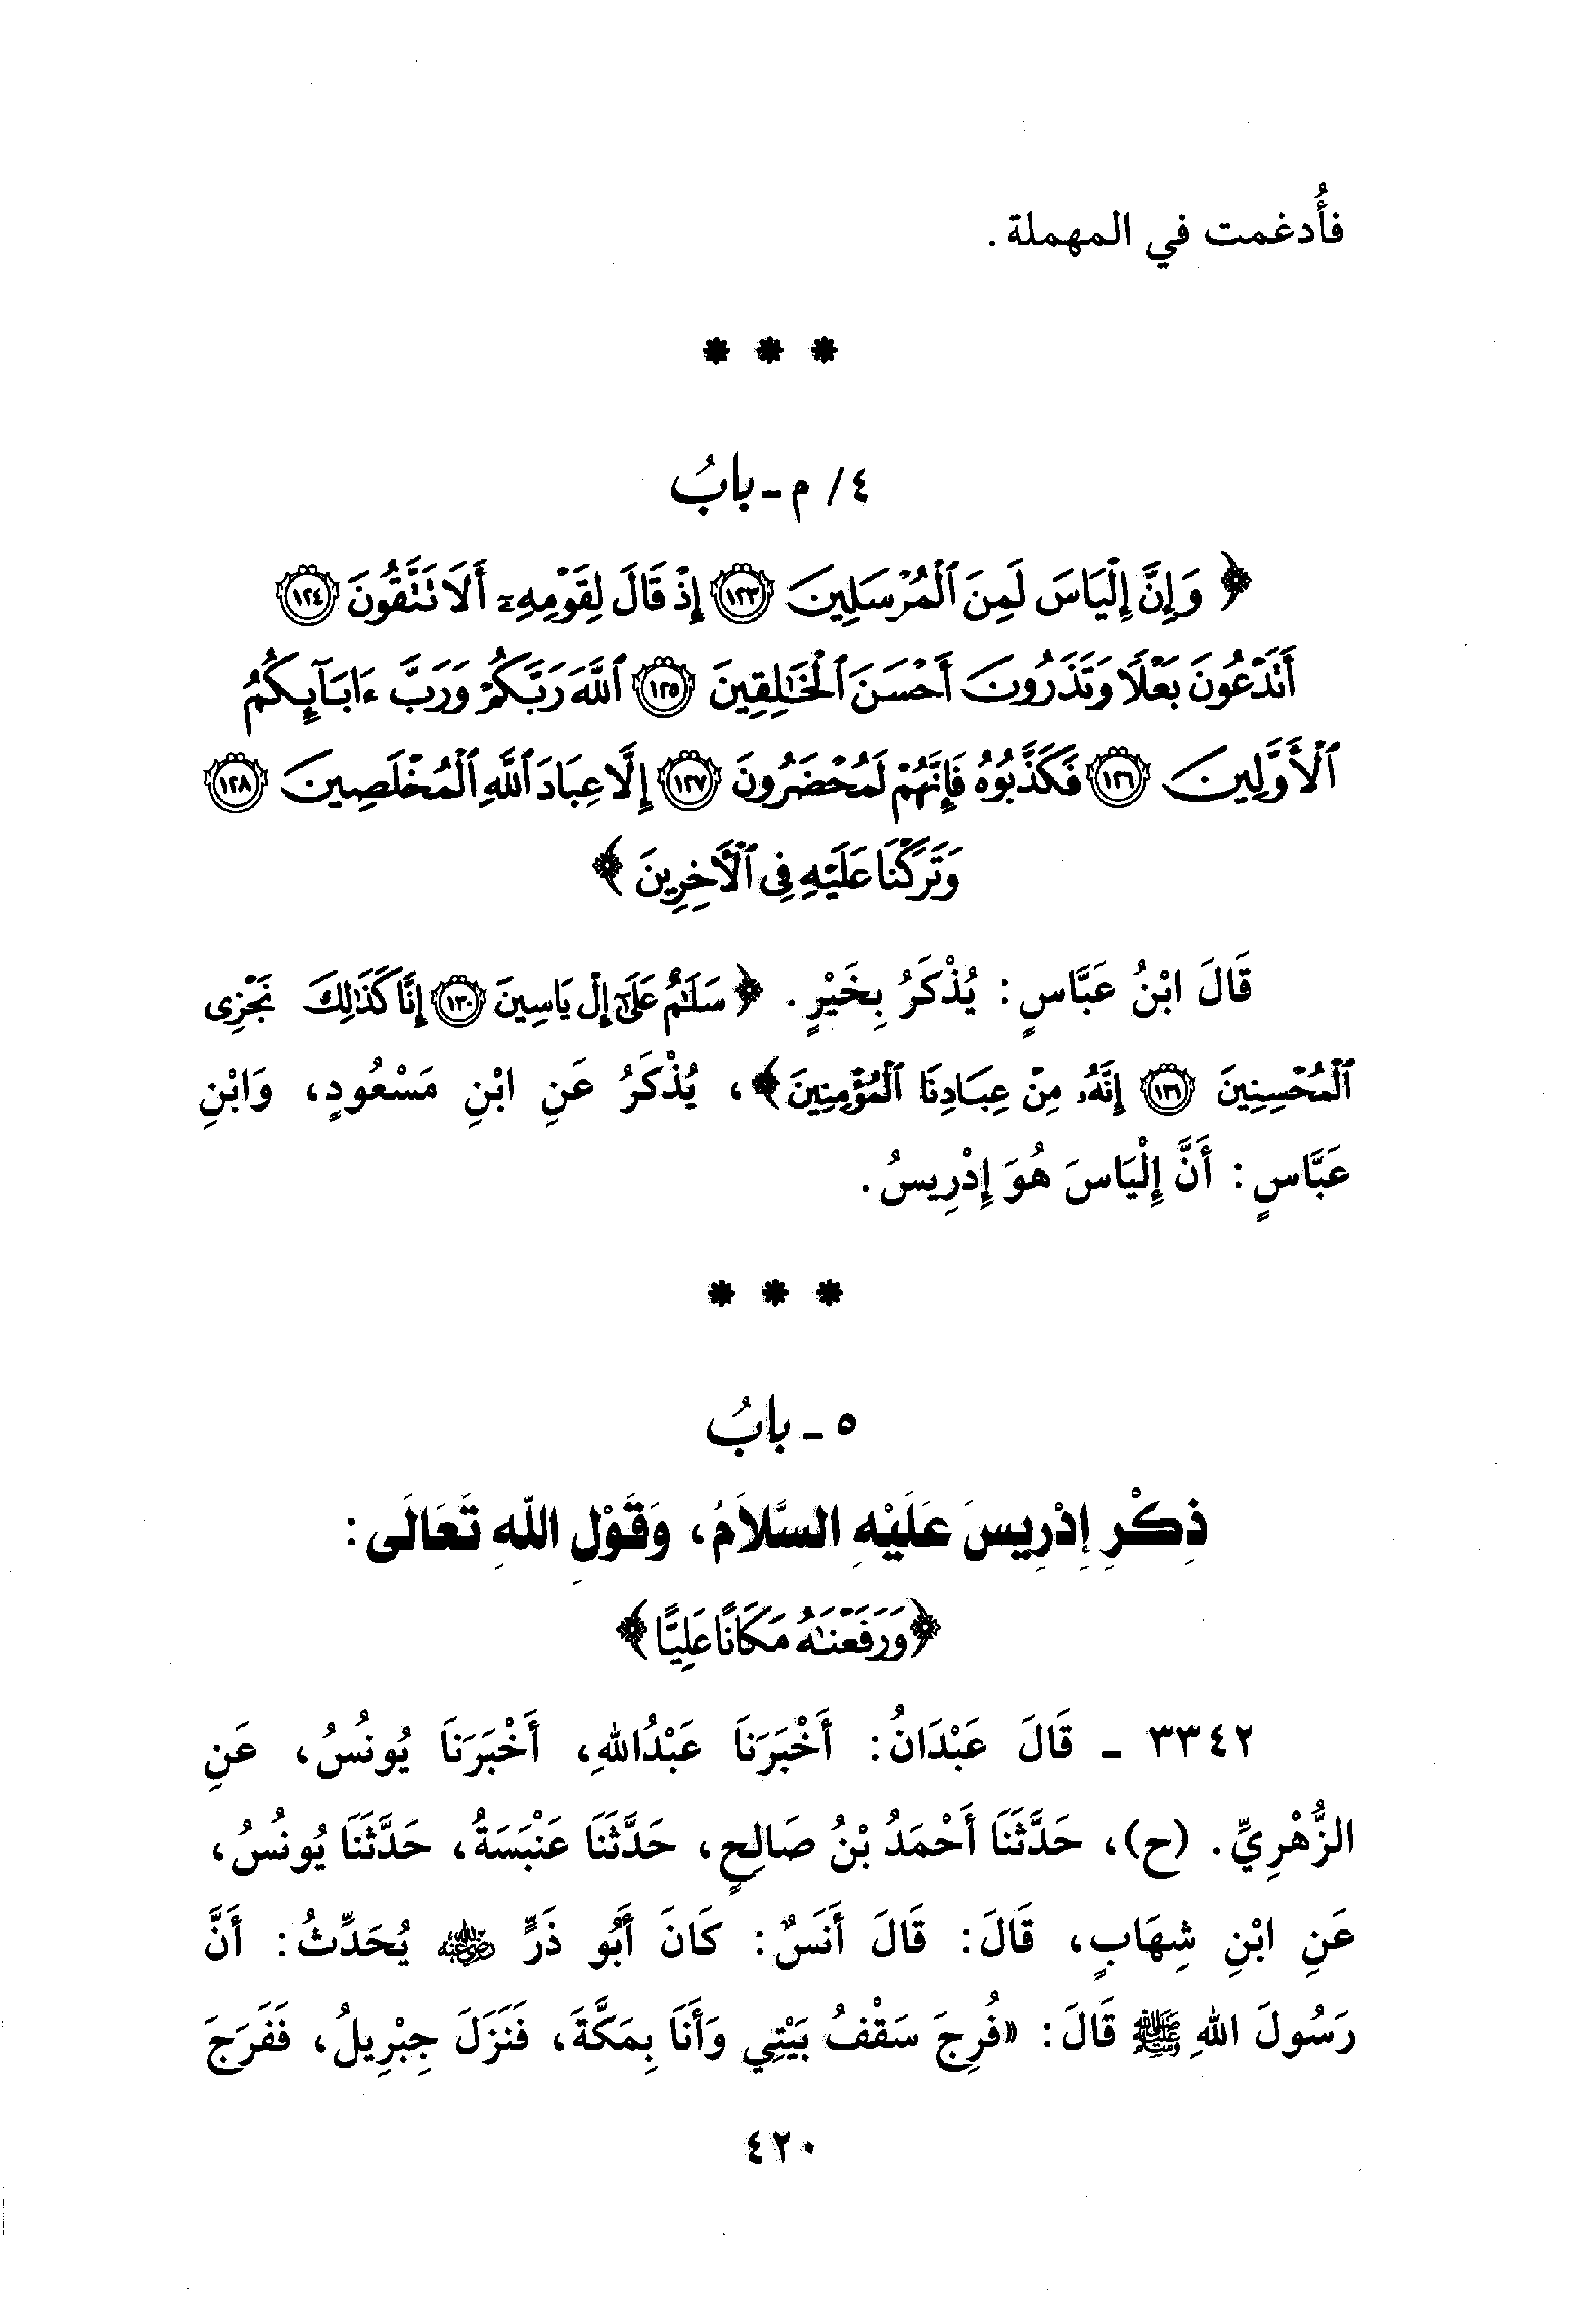 فأُدغمت في المهملة.
* * *
٤/ م - بابُ
﴿وَإِنَّ إِلْيَاسَ لَمِنَ ٱلْمُرْسَلِينَ ١٢٣ إِذْ قَالَ لِقَوْمِهِۦٓ أَلَا تَتَّقُونَ ١٢٤
أَتَدْعُونَ بَعْلًا وَتَذَرُونَ أَحْسَنَ ٱلْخَٰلِقِينَ ١٢٥ ٱللَّهَ رَبَّكُمْ وَرَبَّ ءَابَآئِكُمُ
ٱلْأَوَّلِينَ ١٢٦ فَكَذَّبُوهُ فَإِنَّهُمْ لَمُحْضَرُونَ ١٢٧ إِلَّا عِبَادَ ٱللَّهِ ٱلْمُخْلَصِينَ ١٢٨
وَتَرَكْنَا عَلَيْهِ فِى ٱلْأٓخِرِينَ﴾
قَالَ ابْنُ عَبَّاسٍ: يُذْكَرُ بِخَيْرٍ. ﴿سَلَٰمٌ عَلَىٰٓ إِلْ يَاسِينَ ١٣٠ إِنَّا كَذَٰلِكَ نَجْزِى
ٱلْمُحْسِنِينَ ١٣١ إِنَّهُۥ مِنْ عِبَادِنَا ٱلْمُؤْمِنِينَ﴾، يُذْكَرُ عَنِ ابْنِ مَسْعُودٍ، وَابْنِ
عَبَّاسٍ: أَنَّ إِلْيَاسَ هُوَ إِدْرِيسُ.
* * *
٥ - بابُ
ذِكْرِ إِدْرِيسَ عَلَيْهِ السَّلاَمُ، وَقَوْلِ اللهِ تَعَالَى:
﴿وَرَفَعْنَٰهُ مَكَانًا عَلِيًّا﴾
٣٣٤٢ - قَالَ عَبْدَانُ: أَخْبَرَنَا عَبْدُاللهِ، أَخْبَرَنَا يُونُسُ، عَنِ
الزُّهْرِيِّ. (ح)، حَدَّثَنَا أَحْمَدُ بْنُ صَالِحٍ، حَدَّثَنَا عَنْبَسَةُ، حَدَّثَنَا يُونُسُ،
عَنِ ابْنِ شِهَابٍ، قَالَ: قَالَ أَنَسٌ: كَانَ أَبُو ذَرٍّ رضي الله عنه يُحَدِّثُ: أَنَّ
رَسُولَ اللهِ ﷺ قَالَ: «فُرِجَ سَقْفُ بَيْتِي وَأَنَا بِمَكَّةَ، فَنَزَلَ جِبْرِيلُ، فَفَرَجَ
٤٢٠